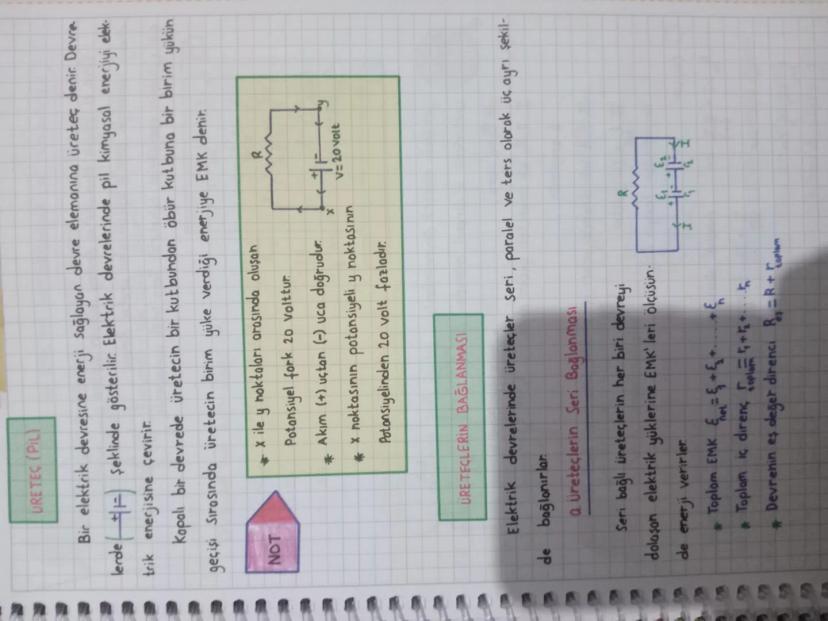 ÜRETEÇ (PİL)
Bir elektrik devresine enerji sağlayan devre elemanına üreteç denir. Devre-
lerde ( + - ) şeklinde gösterilir. Elektrik devrelerinde pil kimyasal enerjiyi elek-
trik enerjisine çevirir.
Kapalı bir devrede üretecin bir kutbundan öbür kutbuna bir birim yükün
geçişi sırasında üretecin birim yüke verdiği enerjiye EMK denir.
NOT
* X ile y noktaları arasında oluşan
Potansiyel fark 20 volttur.
* Akım (+) uçtan (-) uca doğrudur.
* X noktasının potansiyeli y noktasının
Potansiyelinden 20 volt fazladır.
R
+ -
X y
V=20 volt
ÜRETEÇLERİN BAĞLANMASI
Elektrik devrelerinde üreteçler seri, paralel ve ters olarak üç ayrı şekil-
de bağlanırlar.
a. Üreteçlerin Seri Bağlanması
Seri bağlı üreteçlerin her biri devreyi
dolaşan elektrik yüklerine EMK'leri ölçüsün-
de enerji verirler.
* Toplam EMK ε net = ε1 + ε2 + ...... + εn
* Toplam iç direnç r toplam = r1 + r2 + .... rn
* Devrenin eş değer direnci Reş = R + r toplam
R
ε1 ε2
r1 r2
I I